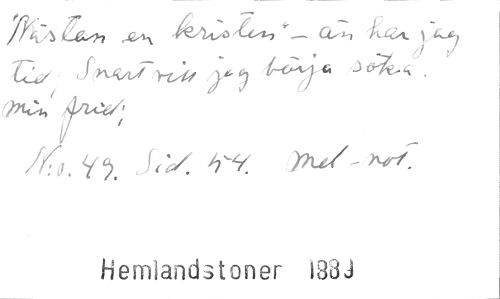 "Nästan en kristen" - än har jag
tid, Snart vill jag börja söka.
min frid;
N:o. 49. Sid. 54. Mel-not.
Hemlandstoner 1889